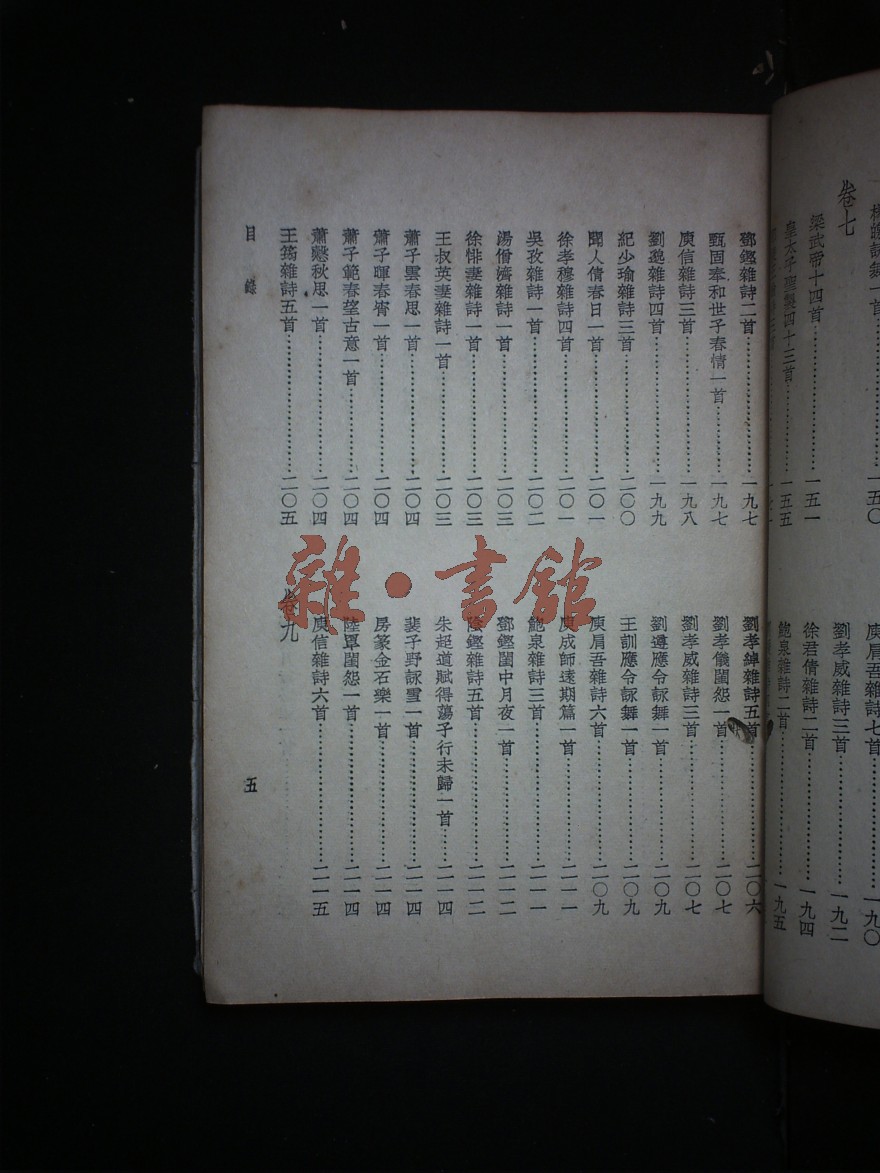 卷七
梁武帝十四首……一五一
皇太子聖製四十三首……一五五
一五〇
庾肩吾雜詩七首……一九〇
劉孝威雜詩三首……一九二
徐君倩雜詩二首……一九四
鮑泉雜詩二首……一九五
鄧鏗雜詩二首……一九七
甄固奉和世子春情一首……一九七
庾信雜詩三首……一九八
劉邈雜詩四首……一九九
紀少瑜雜詩三首……二〇〇
聞人倩春日一首……二〇一
徐孝穆雜詩四首……二〇一
吳孜雜詩一首……二〇二
湯僧濟雜詩一首……二〇三
徐悱妻雜詩一首……二〇三
王叔英妻雜詩一首……二〇三
蕭子雲春思一首……二〇四
蕭子暉春宵一首……二〇四
蕭子範春望古意一首……二〇四
蕭愨秋思一首……二〇四
王筠雜詩五首……二〇五
劉孝綽雜詩五首……二〇六
劉孝儀閨怨一首……二〇七
劉孝威雜詩三首……二〇七
劉遵應令詠舞一首……二〇九
王訓應令詠舞一首……二〇九
庾肩吾雜詩六首……二〇九
庾成師遠期篇一首……二一一
鮑泉雜詩三首……二一一
鄧鏗閨中月夜一首……二一二
陰鏗雜詩五首……二一二
朱超道賦得蕩子行未歸一首……二一四
裴子野詠雪一首……二一四
房篆金石樂一首……二一四
陸罩閨怨一首……二一四
庾信雜詩六首……二一五
卷九
目錄
五
雜·書館